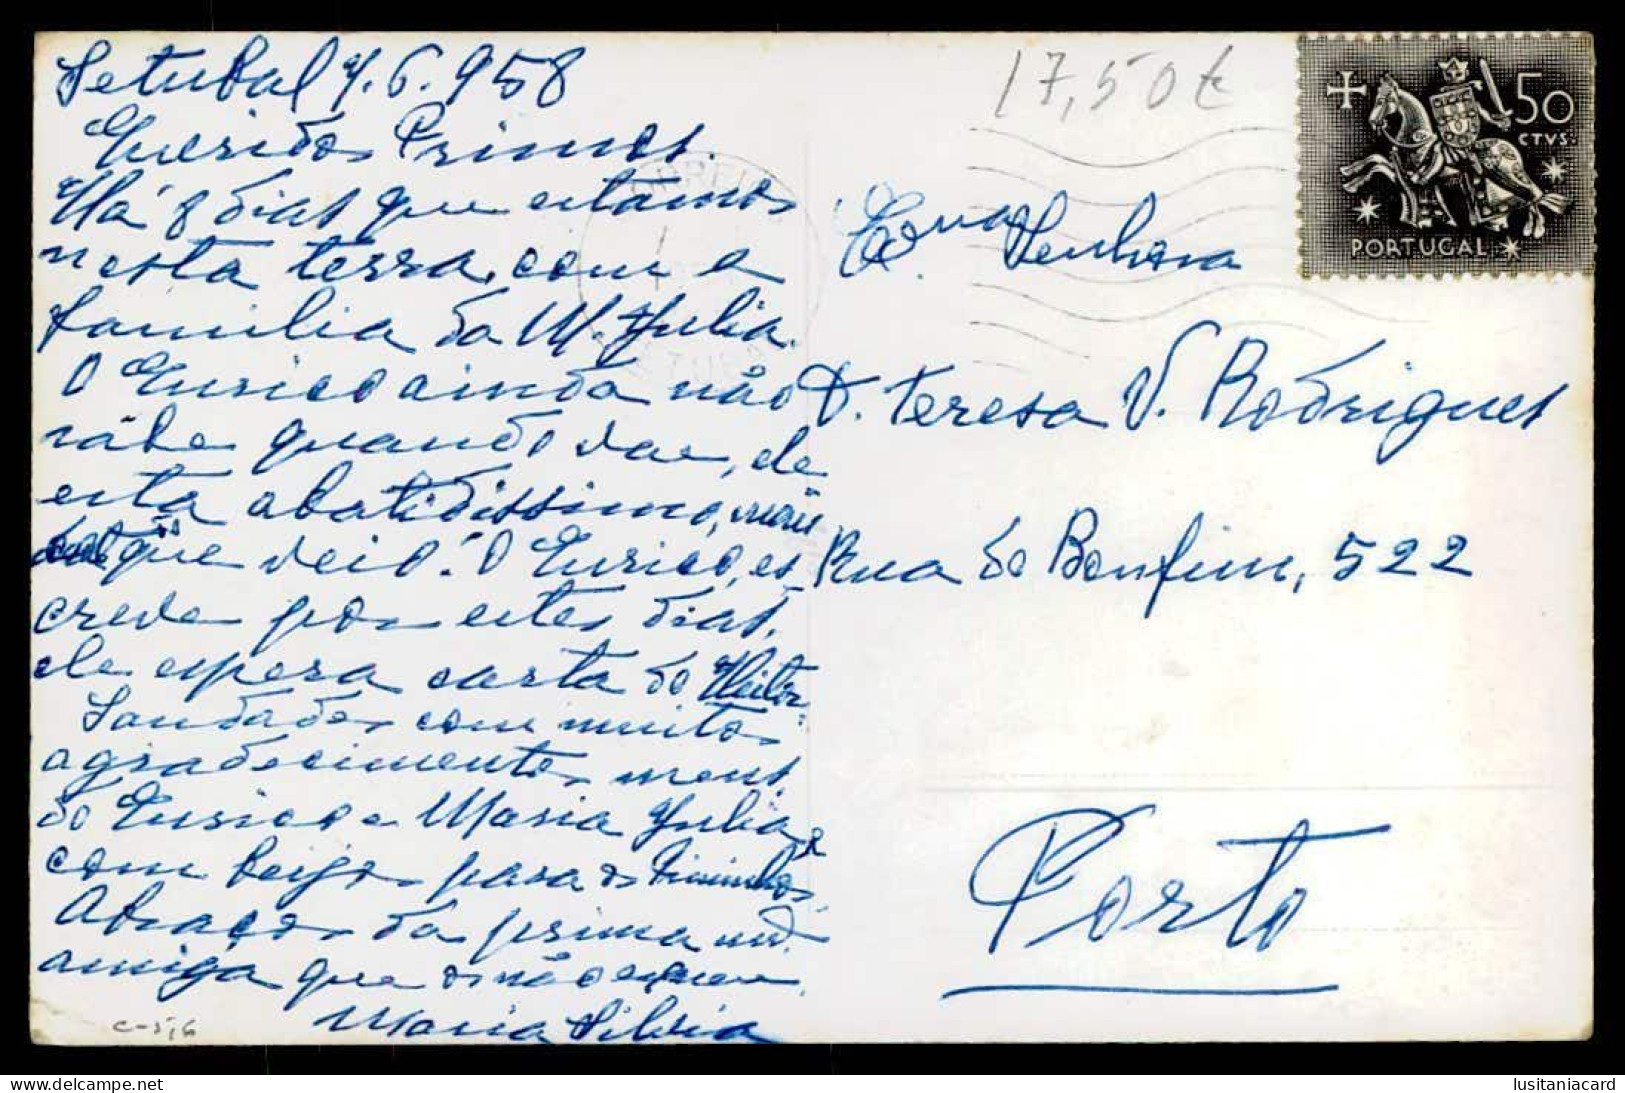 Setubal 9.6.958
Queridos Primos.
Há 8 dias que estâmos
nesta terra, com a
familia da M. Julia.
O Eurico ainda não
sabe quando vae, ele
está abatidissimo, mais
do que veio. O Eurico, es-
creve por estes dias.
ele espera carta do Heitor.
Saudades com muitos
agradecimentos meus,
do Eurico e Maria Julia e
com beijos para os
Abraços da prima md.
amiga que os não esquece
Maria Silvia
17,50 €
50
CTVS.
PORTUGAL
CORREIO
SETUBAL
Exma. Senhora
D. Teresa V. Rodrigues
Rua do Bonfim, 522
Porto
c-5,6
lusitaniacard